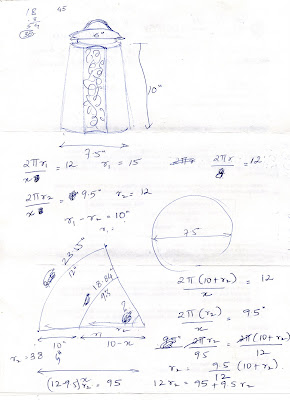 18
45
54
6"
10"
7.5"
2πr₁/x = 12 r₁ = 15 2πr = 12
2πr₂/x = 9.5" r₂ = 12
r₁ - r₂ = 10"
r₁ =
7.5
23.55"
12"
18.84"
9.5
?
r₁ r₂
10" 10-x
2π(10+r₂)/x = 12
2π(r₂)/x = 9.5"
2πr₂/9.5 = 2π(10+r₂)/12
r₂ = 9.5/12 (10+r₂)
r₂ = 38
(12-9.5)r₂ = 95 12r₂ = 95+9.5r₂